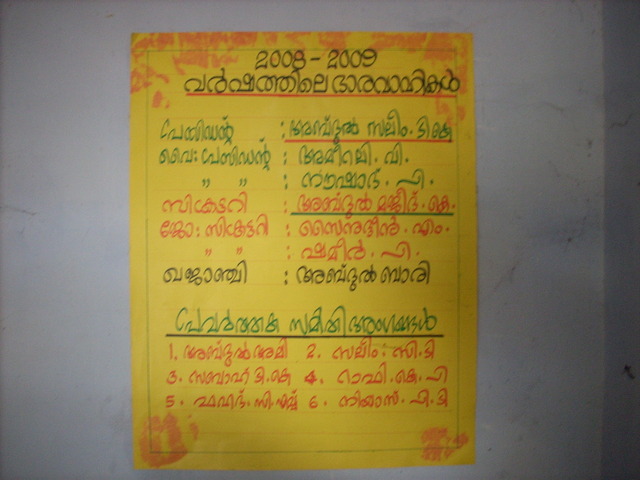 2008-2009
വർഷത്തിലെ ഭാരവാഹികൾ
പ്രസിഡന്റ് : അബ്ദുൽ സലീം. ടി.കെ
വൈ: പ്രസിഡന്റ് : അമീറലി. വി.
" " : നൗഷാദ്. പി.
സിക്രട്ടറി : അബ്ദുൽ മജീദ്. കെ.
ജോ: സിക്രട്ടറി : സൈനുദ്ദീൻ. എം.
" " : ഷമീൽ. പി.
ഖജാഞ്ചി : അബ്ദുൽ ബാരി
പ്രവർത്തക സമിതി അംഗങ്ങൾ
1. അബ്ദുൽ അലി 2. സലീം. സി.ടി
3. സബാഹ് ടി.കെ 4. റാഫി. കെ. പി
5. ഫഹദ്. സി. എച്ച് 6. നിയാസ്. പി. ടി